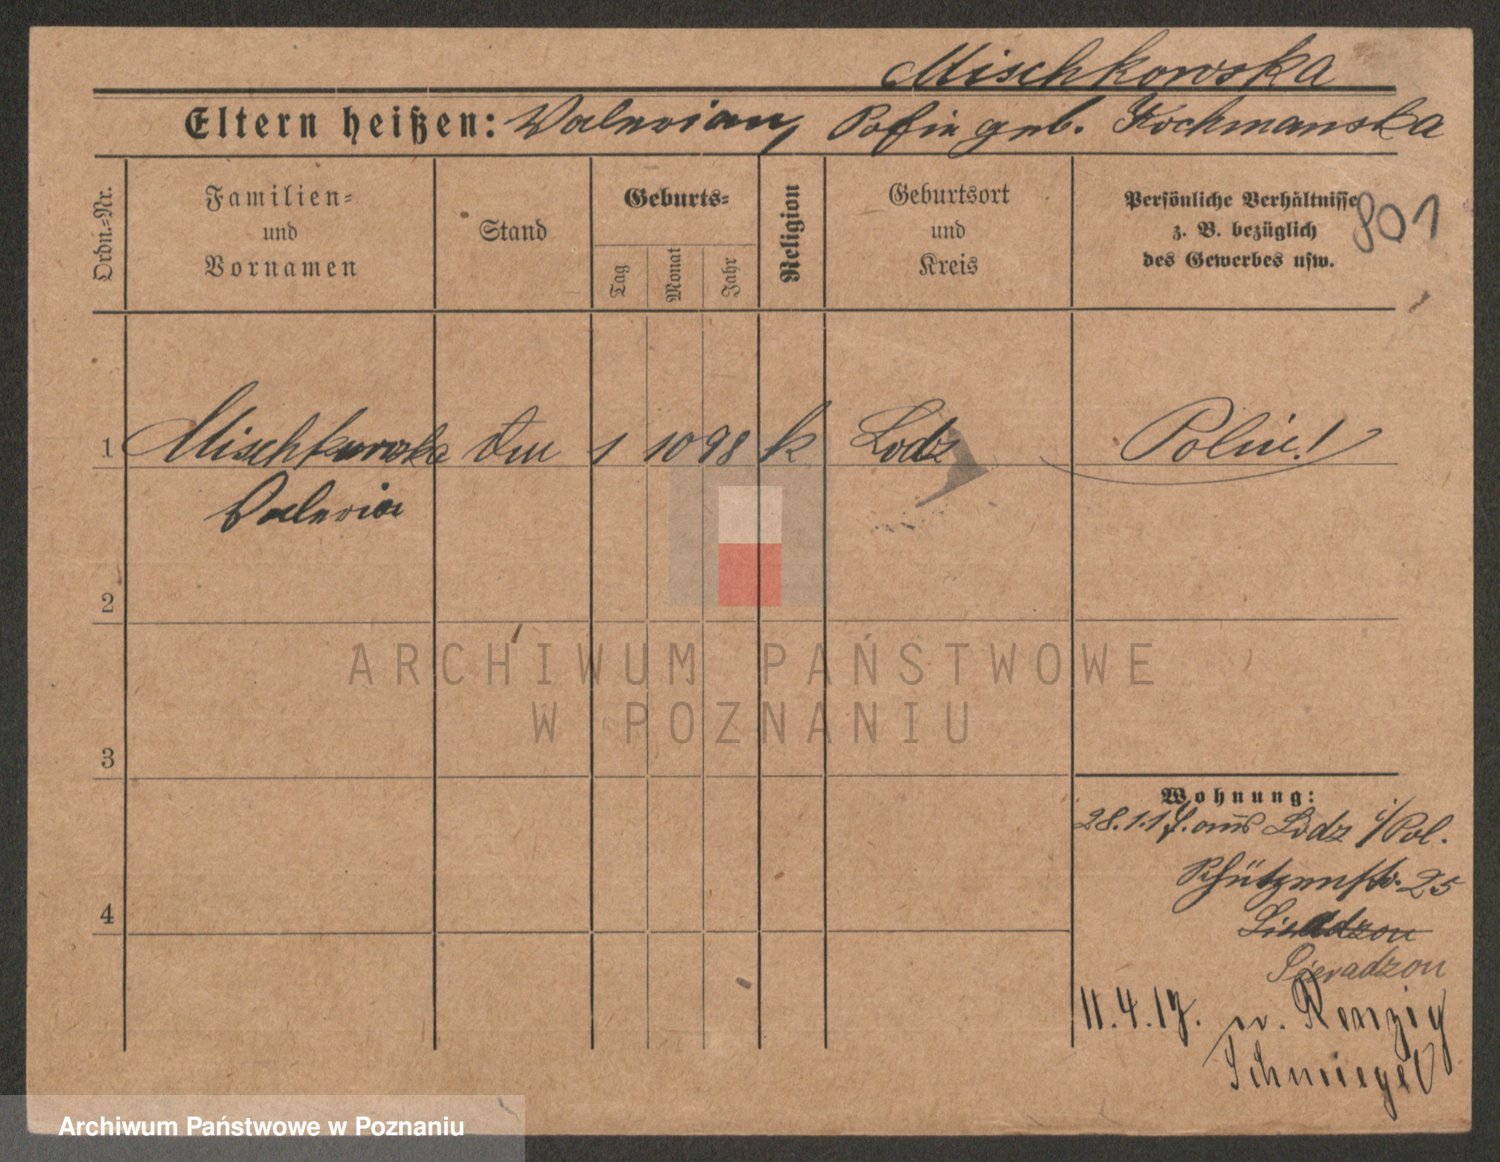 Mischkowska
Eltern heißen: Valerian, Sofie geb. Kochmanska
Ordn.-Nr.
Familien-
und
Vornamen
Stand
Geburts-
Tag
Monat
Jahr
Religion
Geburtsort
und
Kreis
Persönliche Verhältnisse
z. B. bezüglich
des Gewerbes usw.
801
1 Mischkowska 1 10 98 k Lodz Polin!
Valeria
2
ARCHIWUM PAŃSTWOWE
W POZNANIU
3
Wohnung:
28.1.17. aus Lodz i/Pol.
Schützenstr. 25
Sieradzon
11.4.17. n. Renzig
Schmiegel
4
Archiwum Państwowe w Poznaniu